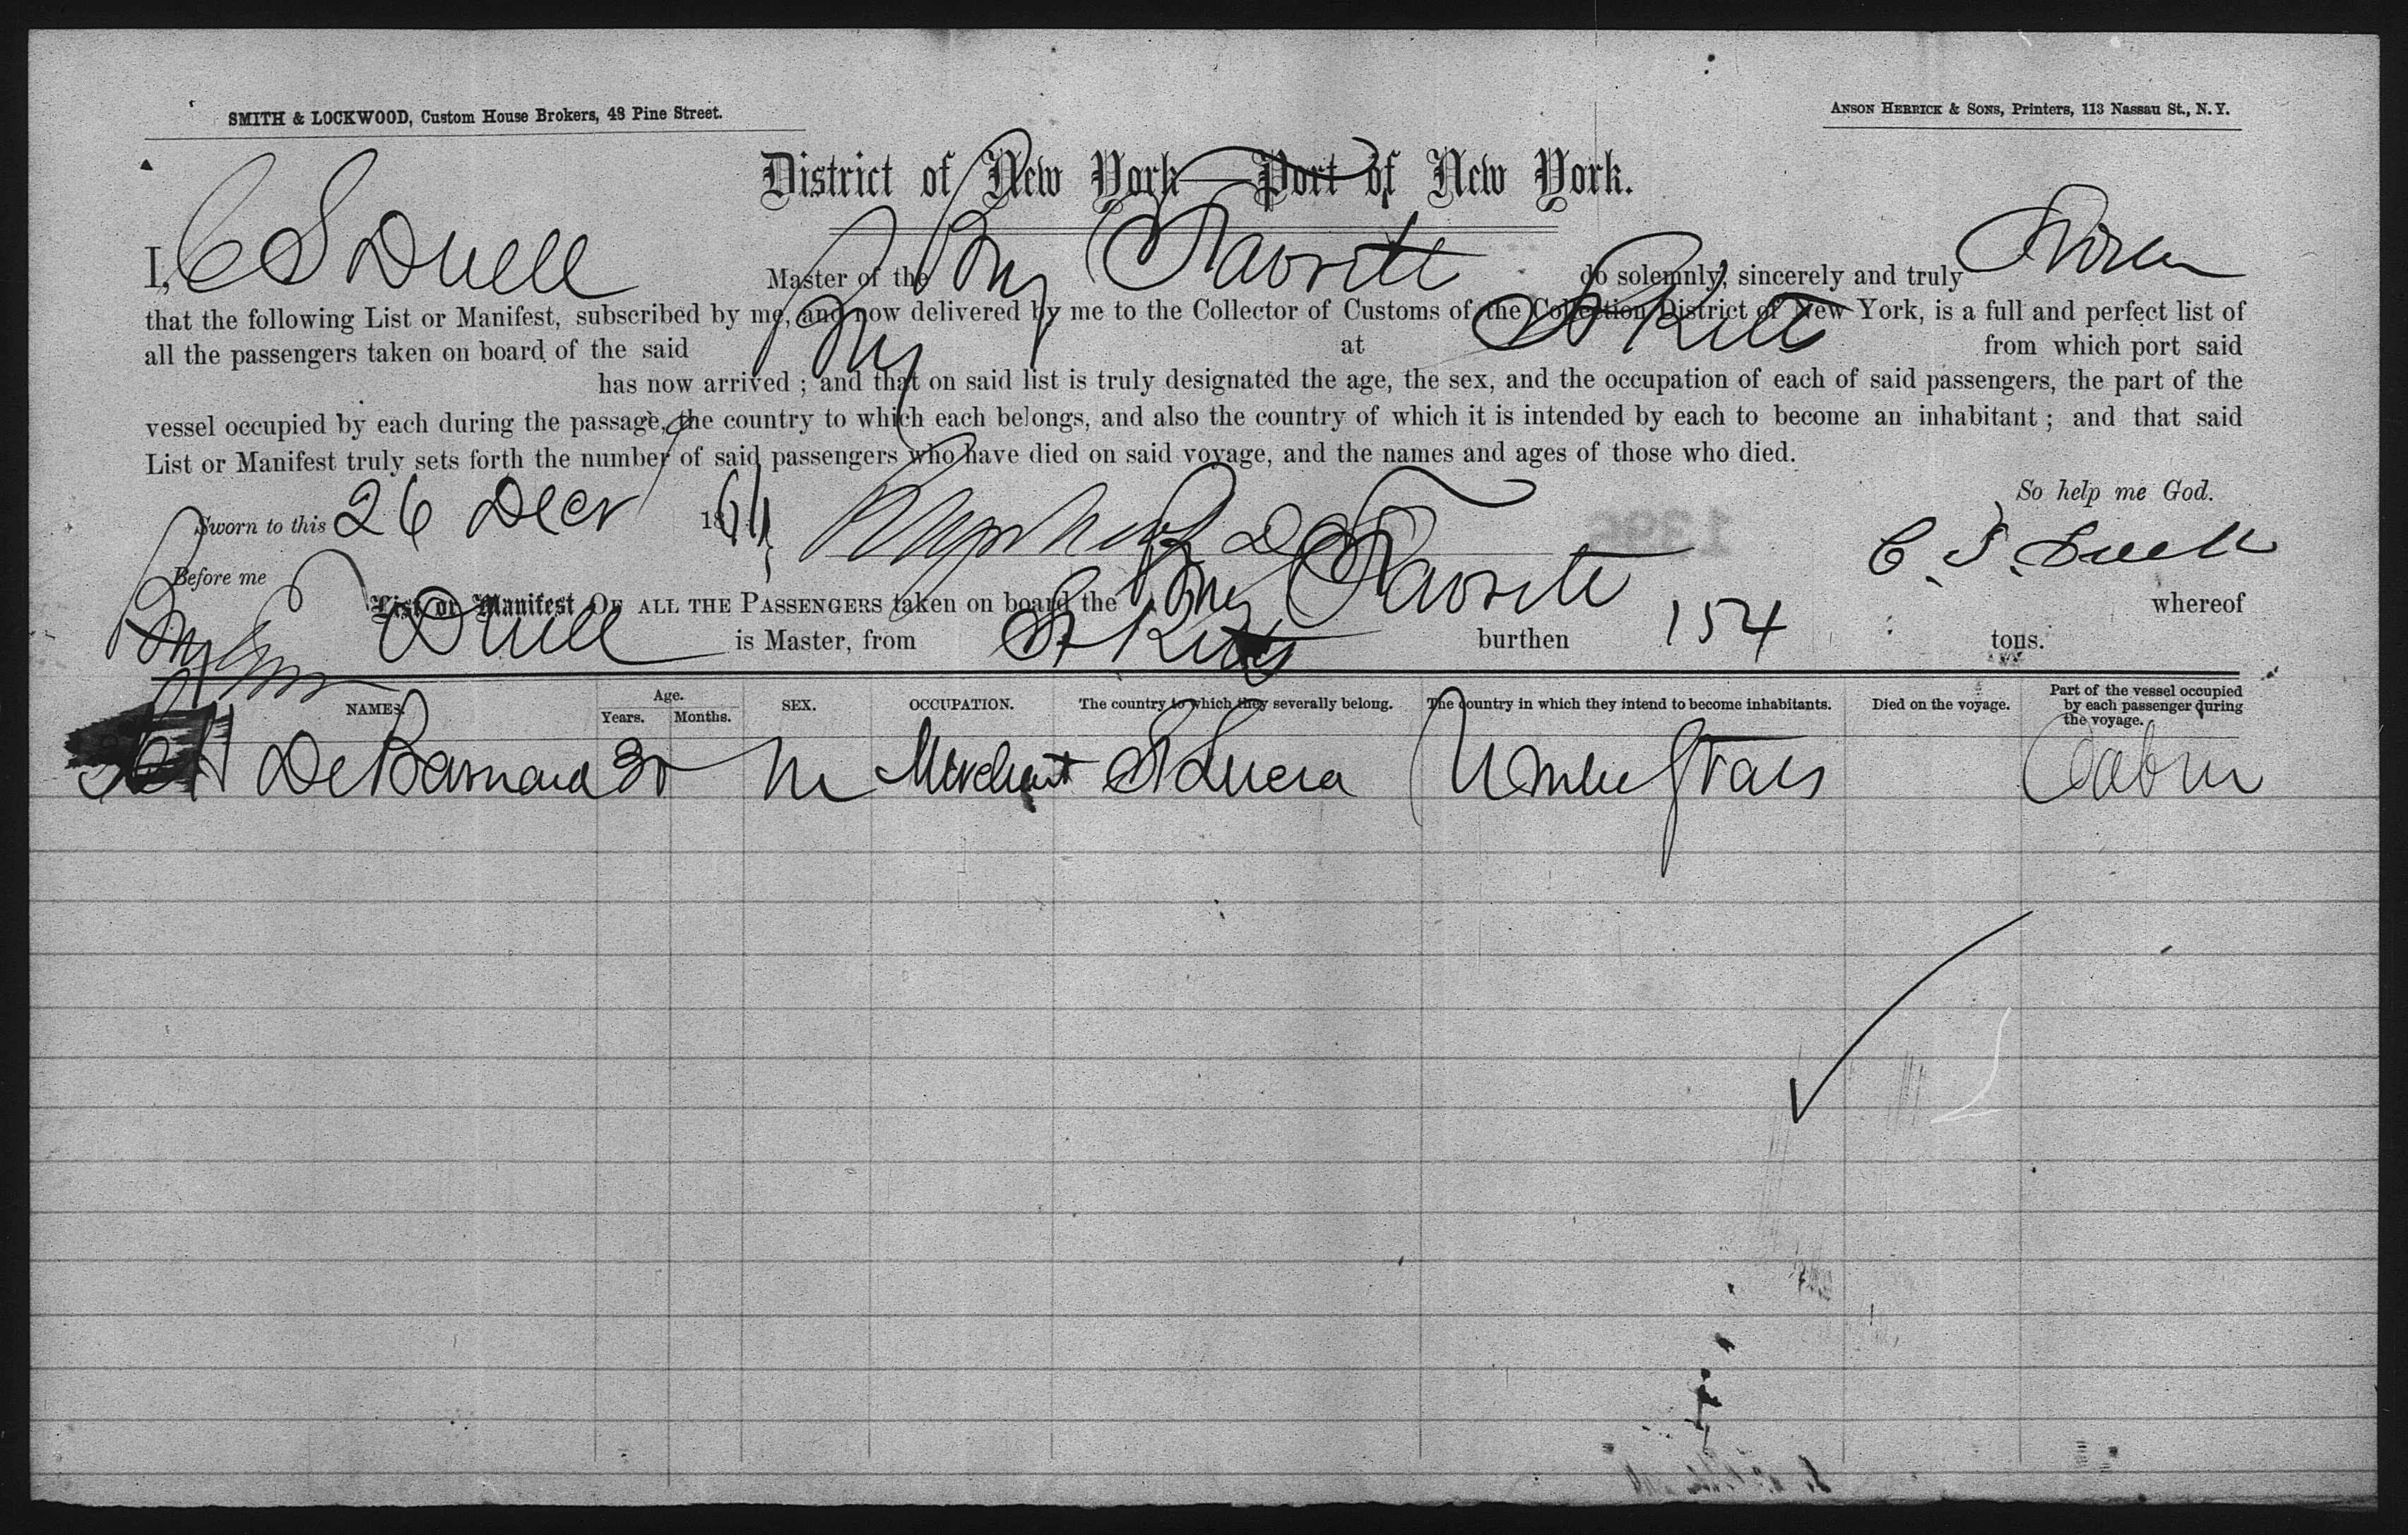 SMITH & LOCKWOOD, Custom House Brokers, 48 Pine Street.
ANSON HERRICK & SONS, Printers, 113 Nassau St., N. Y.
District of New York—Port of New York.
I, C S Duell Master of the Brig Favorite do solemnly, sincerely and truly Swear
that the following List or Manifest, subscribed by me, and now delivered by me to the Collector of Customs of the Collection District of New York, is a full and perfect list of
all the passengers taken on board of the said Brig at St Kitts from which port said
has now arrived ; and that on said list is truly designated the age, the sex, and the occupation of each of said passengers, the part of the
vessel occupied by each during the passage, the country to which each belongs, and also the country of which it is intended by each to become an inhabitant ; and that said
List or Manifest truly sets forth the number of said passengers who have died on said voyage, and the names and ages of those who died.
So help me God.
Sworn to this 26 Decr 18
1396
C. S. Duell
Before me
List or Manifest OF ALL THE PASSENGERS taken on board the Brig Favorite whereof
Duell is Master, from St Kitts burthen 154 tons.
NAMES. Age. Years. Months. SEX. OCCUPATION. The country to which they severally belong. The country in which they intend to become inhabitants. Died on the voyage. Part of the vessel occupied by each passenger during the voyage.
De Barnard 30 M Merchant St Lucia United States Cabin